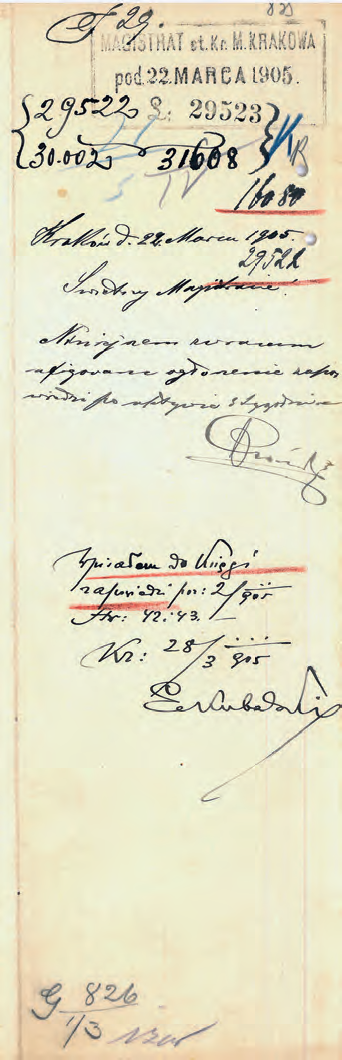 F 29.
829
MAGISTRAT st. Kr. M. KRAKOWA
pod. 22. MARCA 1905.
29522 L: 29523
30.002 31608
IV
16084
Kraków d. 22. Marca 1905.
29522
Świetny Magistracie!
Niniejszem zwracam
afigowane ogłoszenie zapo
wiedzi po upływie 3 tygodni
Wpisałem do księgi
zapowiedzi poz: 2/905
Str: 42 i 43.
Kr: 28/3 905
G 826
1/3